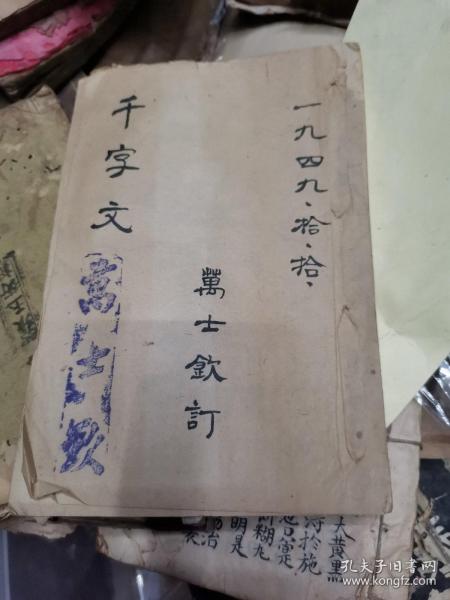 一九四九、拾、拾、
萬士欽訂
千字文
萬士欽
大黃黑
孔夫子旧书网
www.kongfz.com